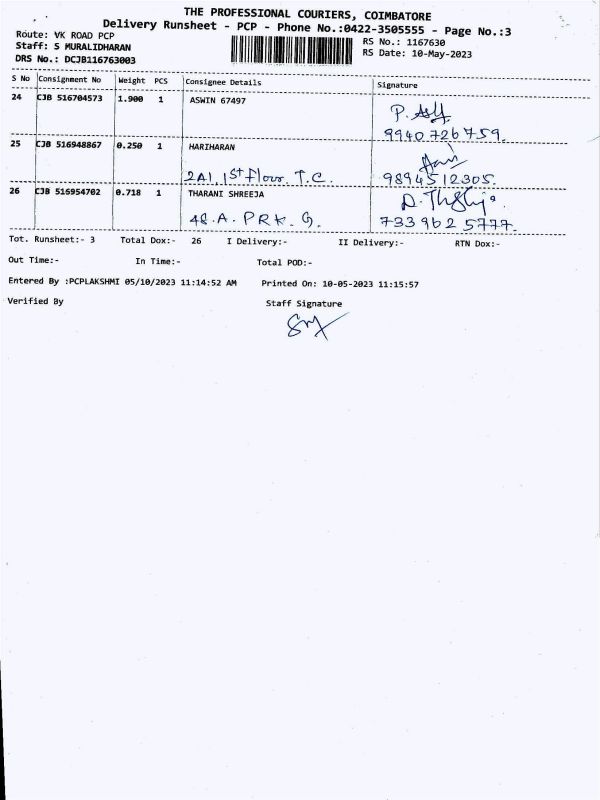 THE PROFESSIONAL COURIERS, COIMBATORE
Delivery Runsheet - PCP - Phone No.:0422-3505555 - Page No.:3
Route: VK ROAD PCP
RS No.: 1167630
Staff: S MURALIDHARAN
RS Date: 10-May-2023
DRS No.: DCJB116763003
S No Consignment No Weight PCS Consignee Details Signature
24 CJB 516704573 1.900 1 ASWIN 67497
9940726759.
25 CJB 516948867 0.250 1 HARIHARAN
2A1, 1st floor, T.C. 9894512305.
26 CJB 516954702 0.718 1 THARANI SHREEJA
48.A. PRK. G. 733962 5777.
Tot. Runsheet:- 3 Total Dox:- 26 I Delivery:- II Delivery:- RTN Dox:-
Out Time:- In Time:- Total POD:-
Entered By :PCPLAKSHMI 05/10/2023 11:14:52 AM Printed On: 10-05-2023 11:15:57
Verified By Staff Signature